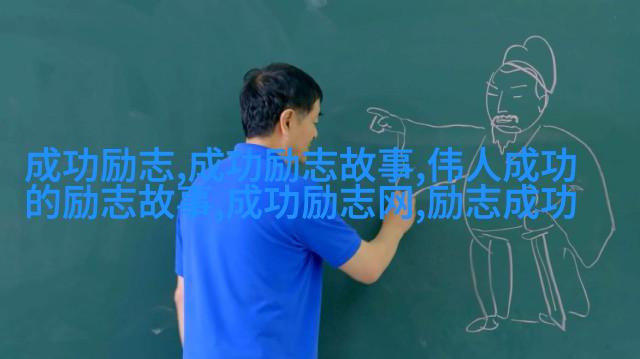 成功励志,成功励志故事,伟人成功
的励志故事,成功励志网,励志成功